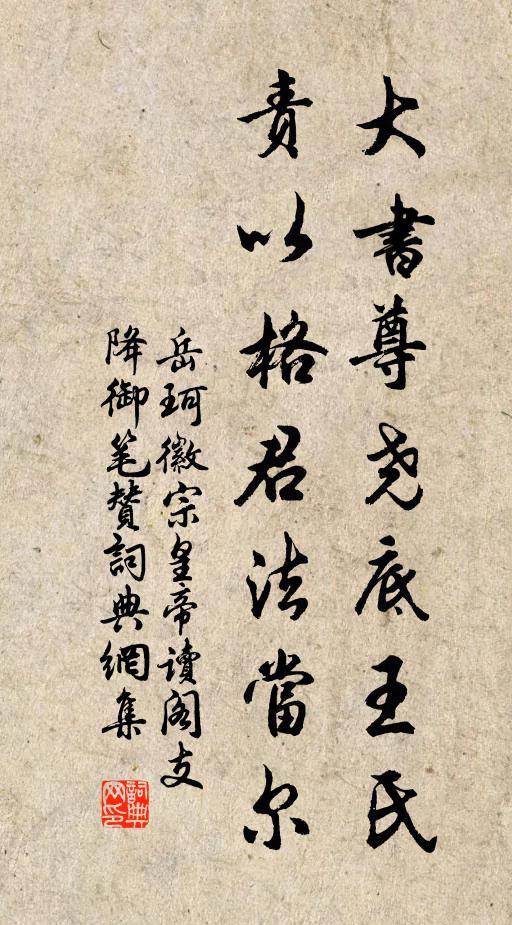 大書尊尧底王氏
責以格君法當尔
岳珂徽宗皇帝讀阁支
降御笔赞詞典網集
詞典
网印